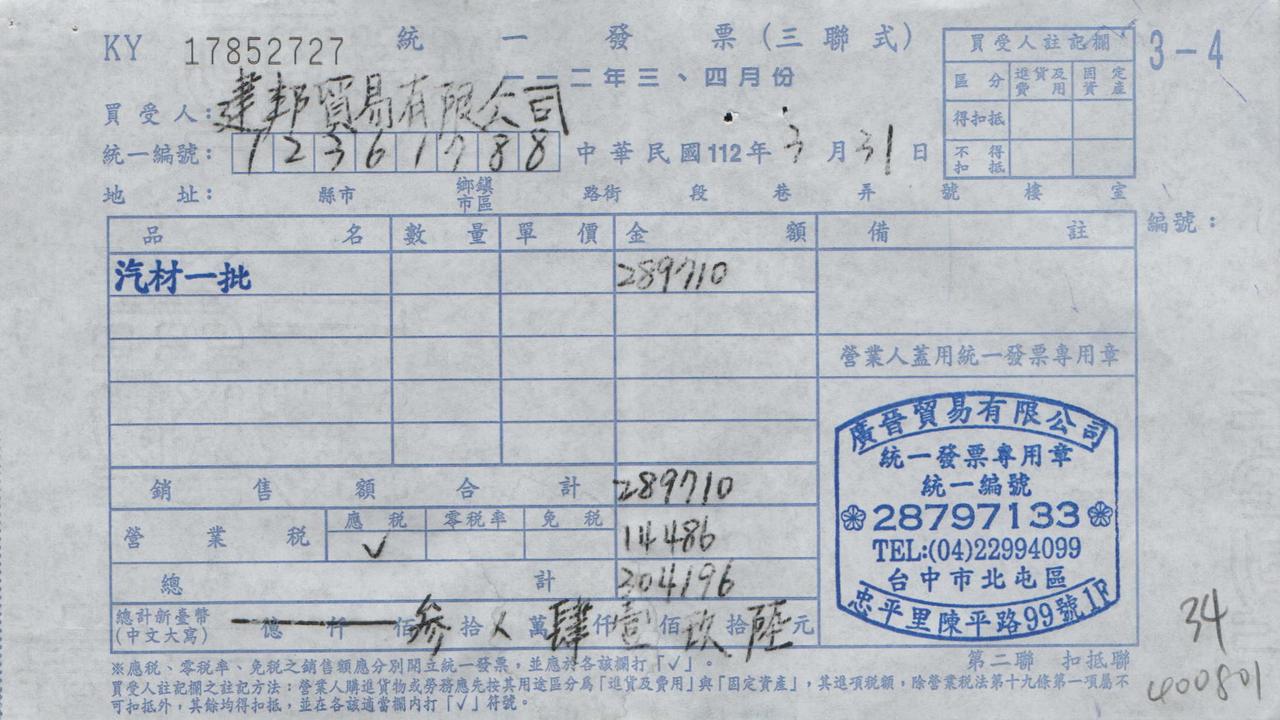 KY 17852727
統一發票(三聯式)
一一二年三、四月份
3-4
買受人註記欄
區分 進貨及費用 固定資產
得扣抵
不得扣抵
買受人:建邦貿易有限公司
統一編號:12361788 中華民國112年3月31日
地址: 縣市 鄉鎮市區 路街 段 巷 弄 號 樓 室
編號:
品名 數量 單價 金額 備註
汽材一批 289710
營業人蓋用統一發票專用章
銷售額合計 289710
營業稅 應稅 零稅率 免稅
✓ 14486
總計 304196
總計新臺幣(中文大寫) 億 仟 佰 參 拾 萬 肆 仟 壹 佰 玖 拾 陸 元
廣晉貿易有限公司
統一發票專用章
統一編號
28797133
TEL:(04)22994099
台中市北屯區
忠平里陳平路99號1F
34
400801
第二聯 扣抵聯
※應稅、零稅率、免稅之銷售額應分別開立統一發票,並應於各該欄打「✓」。
買受人註記欄之註記方法:營業人購進貨物或勞務應先按其用途區分為「進貨及費用」與「固定資產」,其進項稅額,除營業稅法第十九條第一項屬不
可扣抵外,其餘均得扣抵,並在各該適當欄內打「✓」符號。